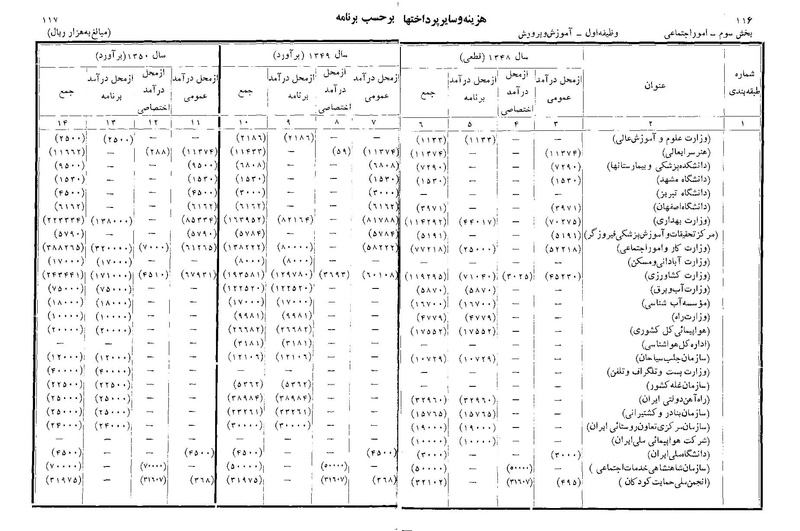 ۱۱۶
هزینه و سایر پرداختها بر حسب برنامه
۱۱۷
بخش سوم - امور اجتماعی
وظیفه اول - آموزش و پرورش
(مبالغ به هزار ریال)
شماره طبقه‌بندی
عنوان
سال ۱۳۴۸ (قطعی)
سال ۱۳۴۹ (برآورد)
سال ۱۳۵۰ (برآورد)
از محل درآمد عمومی از محل درآمد اختصاصی از محل درآمد برنامه جمع
از محل درآمد عمومی از محل درآمد اختصاصی از محل درآمد برنامه جمع
از محل درآمد عمومی از محل درآمد اختصاصی از محل درآمد برنامه جمع
۱ ۲ ۳ ۴ ۵ ۶ ۷ ۸ ۹ ۱۰ ۱۱ ۱۲ ۱۳ ۱۴
(وزارت علوم و آموزش عالی) — — (۱۱۳۳) (۱۱۳۳) — — (۲۱۸۶) (۲۱۸۶) — — (۲۵۰۰) (۲۵۰۰)
(هنرسرایعالی) (۱۱۳۷۴) — — (۱۱۳۷۴) (۱۱۳۷۴) (۵۹) — (۱۱۴۳۳) (۱۱۳۷۴) (۲۸۸) — (۱۱۶۶۲)
(دانشکده پزشکی و بیمارستانها) (۷۲۹۰) — — (۷۲۹۰) (۶۸۰۸) — — (۶۸۰۸) (۹۵۰۰) — — (۹۵۰۰)
(دانشگاه مشهد) (۱۵۳۰) — — (۱۵۳۰) (۱۵۳۰) — — (۱۵۳۰) (۱۵۳۰) — — (۱۵۳۰)
(دانشگاه تبریز) — — — — (۳۰۰۰) — — (۳۰۰۰) (۴۵۰۰) — — (۴۵۰۰)
(دانشگاه اصفهان) (۳۹۷۱) — — (۳۹۷۱) (۶۱۶۲) — — (۶۱۶۲) (۶۱۶۲) — — (۶۱۶۲)
(وزارت بهداری) (۷۰۲۷۵) — (۴۴۰۱۷) (۱۱۴۲۹۲) (۸۱۷۸۸) — (۸۲۱۶۴) (۱۶۳۹۵۲) (۸۵۳۳۴) — (۱۳۸۰۰۰) (۲۲۳۳۳۴)
(مرکز تحقیقات و آموزش پزشکی فیروزگر) (۵۱۹۱) — — (۵۱۹۱) (۵۷۸۴) — — (۵۷۸۴) (۵۷۹۰) — — (۵۷۹۰)
(وزارت کار و امور اجتماعی) (۵۲۲۱۸) — (۲۵۰۰۰) (۷۷۲۱۸) (۵۸۲۲۲) — (۸۰۰۰۰) (۱۳۸۲۲۲) (۶۱۲۶۵) (۷۰۰۰) (۳۲۰۰۰۰) (۳۸۸۲۶۵)
(وزارت آبادانی و مسکن) — — — — — — (۸۰۰۰) (۸۰۰۰) — — (۱۷۰۰۰) (۱۷۰۰۰)
(وزارت کشاورزی) (۴۵۲۳۰) (۳۰۲۵) (۷۱۰۴۰) (۱۱۹۲۹۵) (۶۰۱۰۸) (۳۶۹۳) (۱۲۹۷۸۰) (۱۹۳۵۸۱) (۶۷۹۳۱) (۴۵۱۰) (۱۷۱۰۰۰) (۲۴۳۴۴۱)
(وزارت آب و برق) — — (۵۸۷۰) (۵۸۷۰) — — (۱۲۲۵۲۰) (۱۲۲۵۲۰) — — (۷۵۰۰۰) (۷۵۰۰۰)
(مؤسسه آب شناسی) — — (۱۶۷۰۰) (۱۶۷۰۰) — — (۱۷۰۰۰) (۱۷۰۰۰) — — (۱۸۰۰۰) (۱۸۰۰۰)
(وزارت راه) — — (۴۷۷۹) (۴۷۷۹) — — (۹۹۸۱) (۹۹۸۱) — — (۱۰۰۰۰) (۱۰۰۰۰)
(هواپیمائی کل کشوری) — — (۱۷۵۵۲) (۱۷۵۵۲) — — (۲۶۶۸۲) (۲۶۶۸۲) — — (۲۰۰۰۰) (۲۰۰۰۰)
(اداره کل هواشناسی) — — — — — — (۳۱۸۱) (۳۱۸۱) — — — —
(سازمان جلب سیاحان) — — (۱۰۷۲۹) (۱۰۷۲۹) — — (۱۲۱۰۶) (۱۲۱۰۶) — — (۱۲۰۰۰) (۱۲۰۰۰)
(وزارت پست و تلگراف و تلفن) — — — — — — — — — — (۴۰۰۰۰) (۴۰۰۰۰)
(سازمان غله کشور) — — — — — — (۵۳۶۲) (۵۳۶۲) — — (۲۲۵۰۰) (۲۲۵۰۰)
(راه آهن دولتی ایران) — — (۳۲۹۶۰) (۳۲۹۶۰) — — (۳۸۹۸۴) (۳۸۹۸۴) — — (۲۵۰۰۰) (۲۵۰۰۰)
(سازمان بنادر و کشتیرانی) — — (۱۵۷۶۵) (۱۵۷۶۵) — — (۲۳۲۶۱) (۲۳۲۶۱) — — (۲۵۰۰۰) (۲۵۰۰۰)
(سازمان مرکزی تعاون روستائی ایران) — — (۱۹۰۰۰) (۱۹۰۰۰) — — (۳۰۰۰۰) (۳۰۰۰۰) — — (۲۴۰۰۰) (۲۴۰۰۰)
(شرکت هواپیمائی ملی ایران) — — (۱۰۰۰۰) (۱۰۰۰۰) — — — — — — — —
(دانشگاه ملی ایران) (۳۰۰۰) — — (۳۰۰۰) (۴۵۰۰) — — (۴۵۰۰) (۴۵۰۰) — — (۴۵۰۰)
(سازمان شاهنشاهی خدمات اجتماعی) — (۵۰۰۰۰) — (۵۰۰۰۰) — (۵۰۰۰۰) — (۵۰۰۰۰) — (۷۰۰۰۰) — (۷۰۰۰۰)
(انجمن ملی حمایت کودکان) (۴۹۵) (۳۱۶۰۷) — (۳۲۱۰۲) (۳۶۸) (۳۱۶۰۷) — (۳۱۹۷۵) (۳۶۸) (۳۱۶۰۷) — (۳۱۹۷۵)